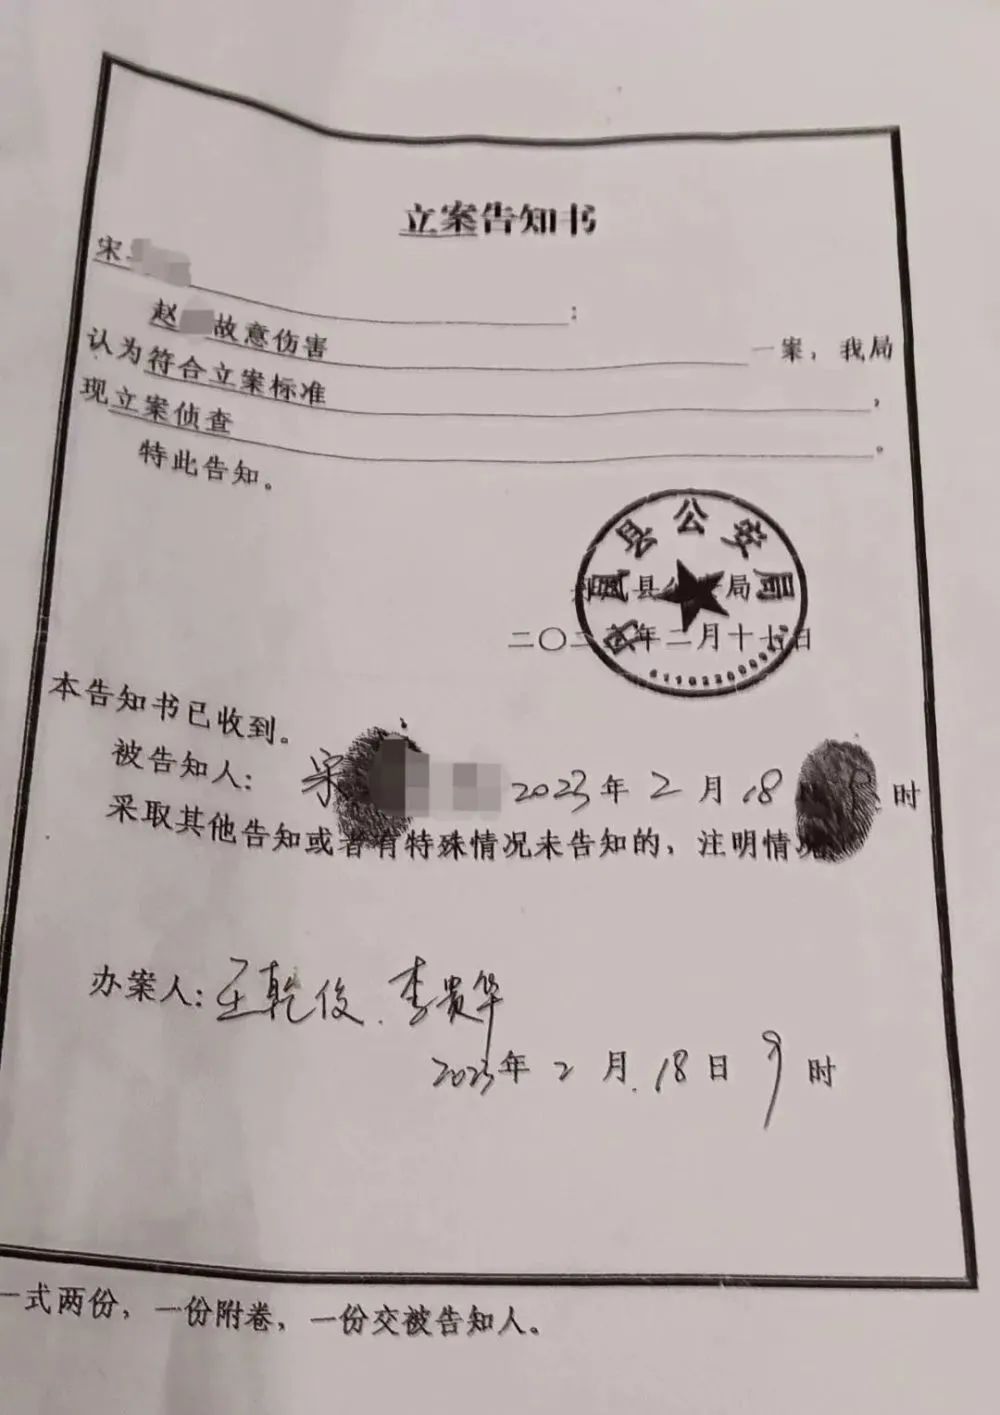 立案告知书
宋
：
赵 故意伤害 一案，我局
认为符合立案标准，
现立案侦查。
特此告知。
县公安局
凤县公 局
二〇二 年二月十七日
本告知书已收到。
被告知人： 宋 2023年2月18 9时
采取其他告知或者有特殊情况未告知的，注明情况
办案人：王乾俊.李贵华
2023年2月.18日9时
一式两份，一份附卷，一份交被告知人。